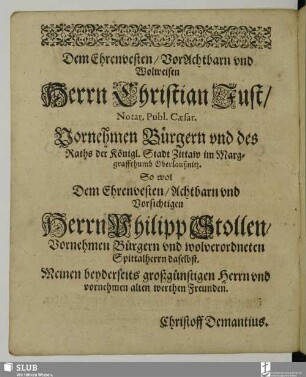 Dem Ehrenvesten/ VorAchtbarn vnd
Wolweisen
Herrn Christian Just/
Notar. Publ. Cæsar.
Vornehmen Bürgern vnd des
Raths der Königl. Stadt Zittaw im Marg-
graffthumb Oberlaußnitz.
So wol
Dem Ehrenvesten/ Achtbarn vnd
Vorsichtigen
Herrn Philipp Stollen/
Vornehmen Bürgern vnd wolverordneten
Spittalherrn daselbst.
Meinen beyderseits großgünstigen Herrn vnd
vornehmen alten werthen Freunden.
Christoff Demantius.
SLUB
Wir führen Wissen.